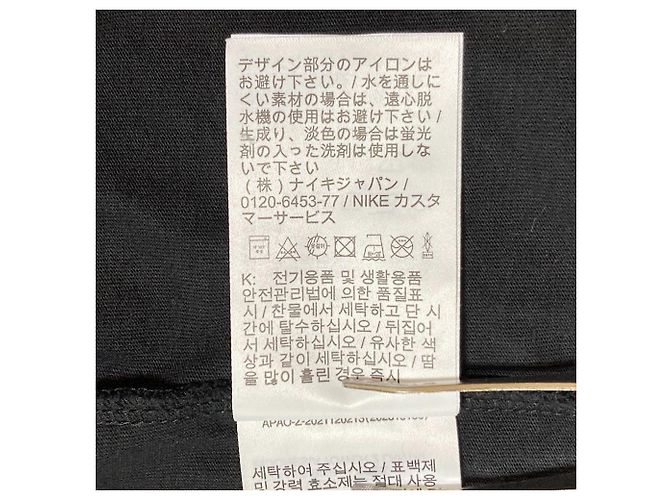 デザイン部分のアイロンは
お避け下さい。/ 水を通しに
くい素材の場合は、遠心脱
水機の使用はお避け下さい /
生成り、淡色の場合は蛍光
剤の入った洗剤は使用しな
いで下さい
(株) ナイキジャパン /
0120-6453-77 / NIKE カスタ
マーサービス
K: 전기용품 및 생활용품
안전관리법에 의한 품질표
시 / 찬물에서 세탁하고 단 시
간에 탈수하십시오 / 뒤집어
서 세탁하십시오 / 유사한 색
상과 같이 세탁하십시오 / 땀
을 많이 흘린 경우 즉시
세탁하여 주십시오 / 표백제
및 강력 효소제는 절대 사용